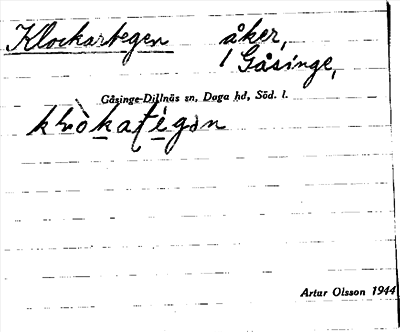 Klockartegen åker,
i Gåsinge,
Gåsinge-Dillnäs sn, Daga hd, Söd. l.
Artur Olsson 1944